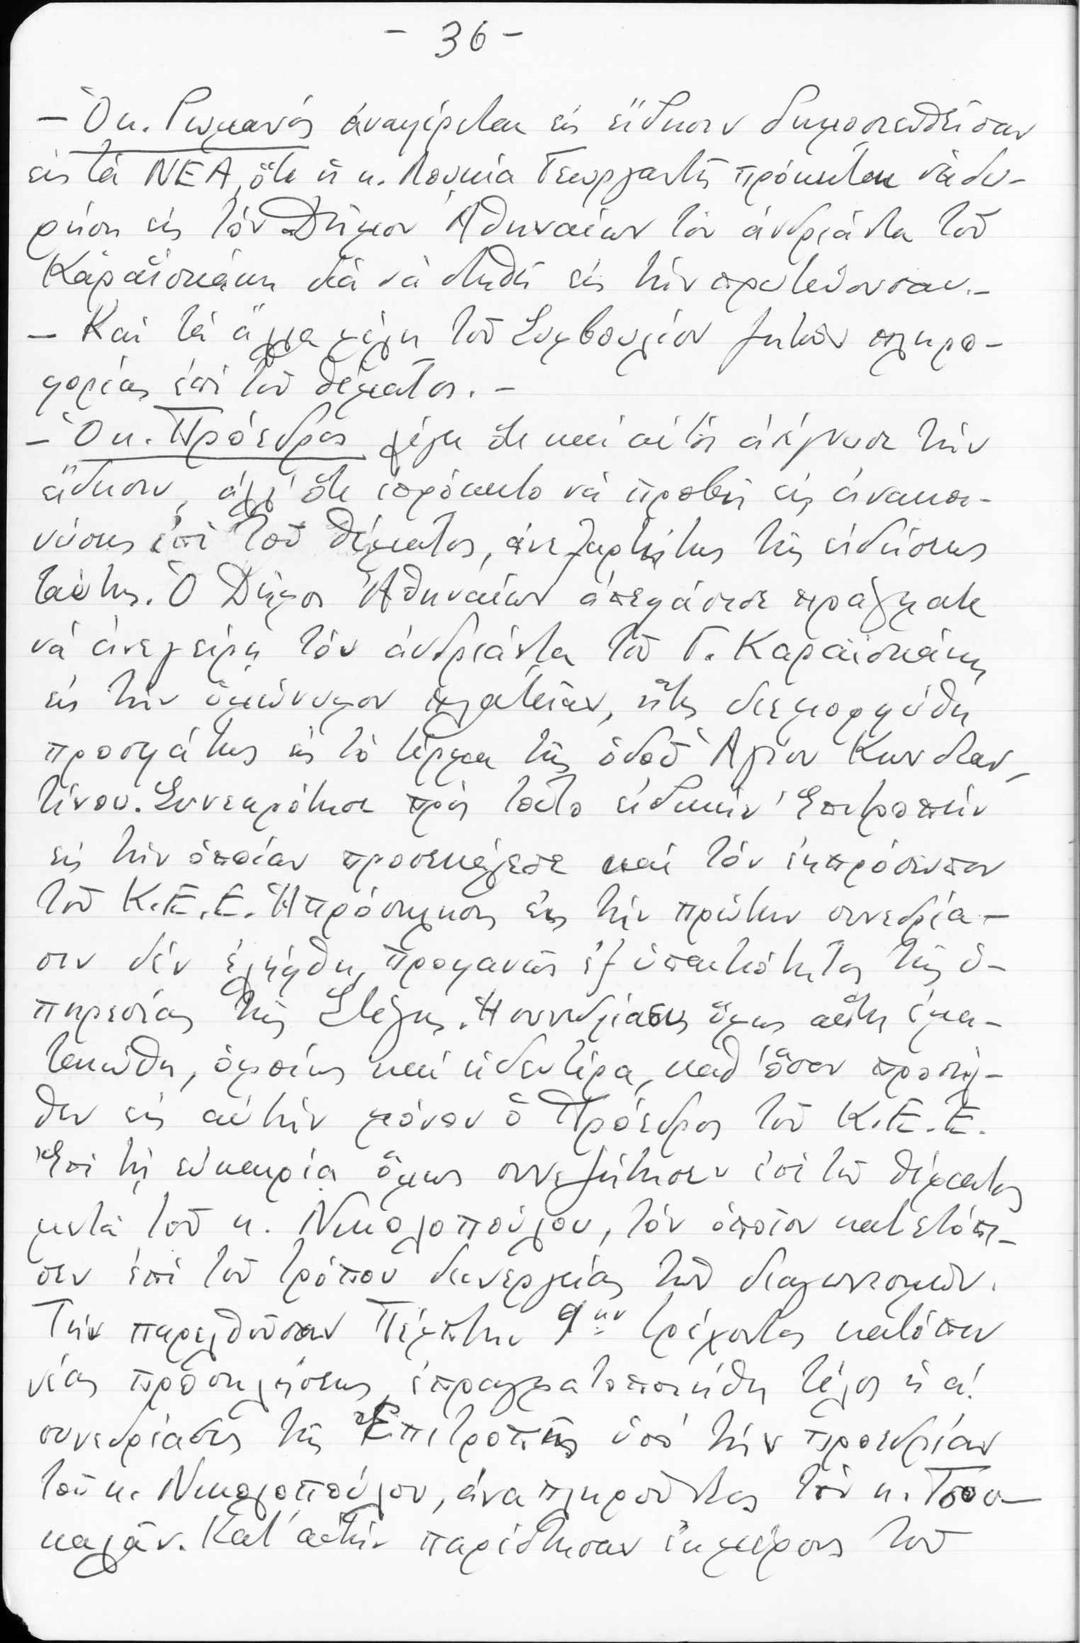 - 36 -
- Ὁ κ. Ρωμανός ἀναφέρεται εἰς εἴδησιν δημοσιευθεῖσαν
εἰς τά ΝΕΑ, ὅτι ἡ κ. Λουκία Γεωργαντῆ πρόκειται νά δω-
ρήση εἰς τόν Δῆμον Ἀθηναίων τόν ἀνδριάντα τοῦ
Καραϊσκάκη διά νά στηθῆ εἰς τήν πρωτεύουσαν.-
- Καί τά ἄλλα μέλη τοῦ Συμβουλίου ζητοῦν πληρο-
φορίας ἐπί τοῦ θέματος. -
- Ὁ κ. Πρόεδρος λέγει ὅτι καί αὐτός ἀνέγνωσε τήν
εἴδησιν, ἀλλ' ὅτι ἐπρόκειτο νά προβῆ εἰς ἀνακοι-
νώσεις ἐπί τοῦ θέματος, ἀνεξαρτήτως τῆς εἰδήσεως
ταύτης. Ὁ Δῆμος Ἀθηναίων ἀπεφάσισε πράγματι
νά ἀνεγείρη τόν ἀνδριάντα τοῦ Γ. Καραϊσκάκη
εἰς τήν ὁμώνυμον πλατεῖαν, ἥτις διεμορφώθη
προσφάτως εἰς τό τέρμα τῆς ὁδοῦ Ἁγίου Κωνσταν-
τίνου. Συνεκρότησε πρός τοῦτο εἰδικήν Ἐπιτροπήν
εἰς τήν ὁποίαν προσεκάλεσε καί τόν ἐκπρόσωπον
τοῦ Κ.Ε.Ε. Ἡ πρόσκλησις εἰς τήν πρώτην συνεδρία-
σιν δέν ἐλήφθη, προφανῶς ἐξ ὑπαιτιότητος τῆς ὑ-
πηρεσίας τῆς Στέγης. Ἡ συνεδρίασις ὅμως αὕτη ἐμα-
ταιώθη, ὁμοίως καί ἡ δευτέρα, καθ' ὅσον προσῆλ-
θεν εἰς αὐτήν μόνον ὁ Πρόεδρος τοῦ Κ.Ε.Ε.
Ἐπί τῇ εὐκαιρίᾳ ὅμως συνεζήτησεν ἐπί τοῦ θέματος
μετά τοῦ κ. Νικολοπούλου, τόν ὁποῖον κατετόπι-
σεν ἐπί τοῦ τρόπου διενεργείας τῶν διαγωνισμῶν.
Τήν παρελθοῦσαν Πέμπτην 9ην τρέχοντος κατόπιν
νέας προσκλήσεως, ἐπραγματοποιήθη τέλος ἡ α΄
συνεδρίασις τῆς Ἐπιτροπῆς ὑπό τήν προεδρίαν
τοῦ κ. Νικολοπούλου, ἀναπληροῦντος τόν κ. Τσου-
καλᾶν. Κατ' αὐτήν παρέστησαν ἐκ μέρους τοῦ